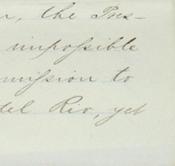 r, the Pres-
impossible
mission to
del Rio, yet